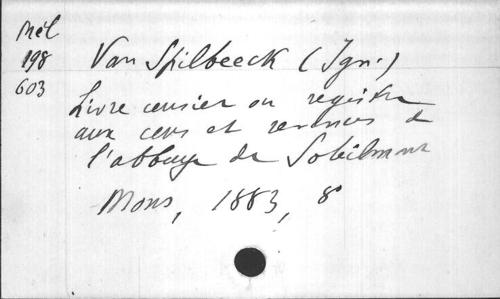 Mél
198
603
Van Spilbeeck (Ign.)
Livre censier ou registre
aux cens et revenus de
l'abbaye de Soleilmont
Mons, 1883, 8°